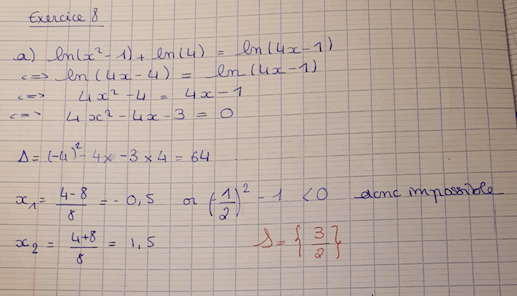 Exercice 8
a) ln(x²-1) + ln(4) = ln(4x-1)
<=> ln(4x-4) = ln(4x-1)
<=> 4x²-4 = 4x-1
<=> 4x²-4x-3 = 0
Δ = (-4)² - 4x-3×4 = 64
x₁ = (4-8)/8 = -0,5 or (1/2)² - 1 < 0 donc impossible
x₂ = (4+8)/8 = 1,5 S = {3/2}